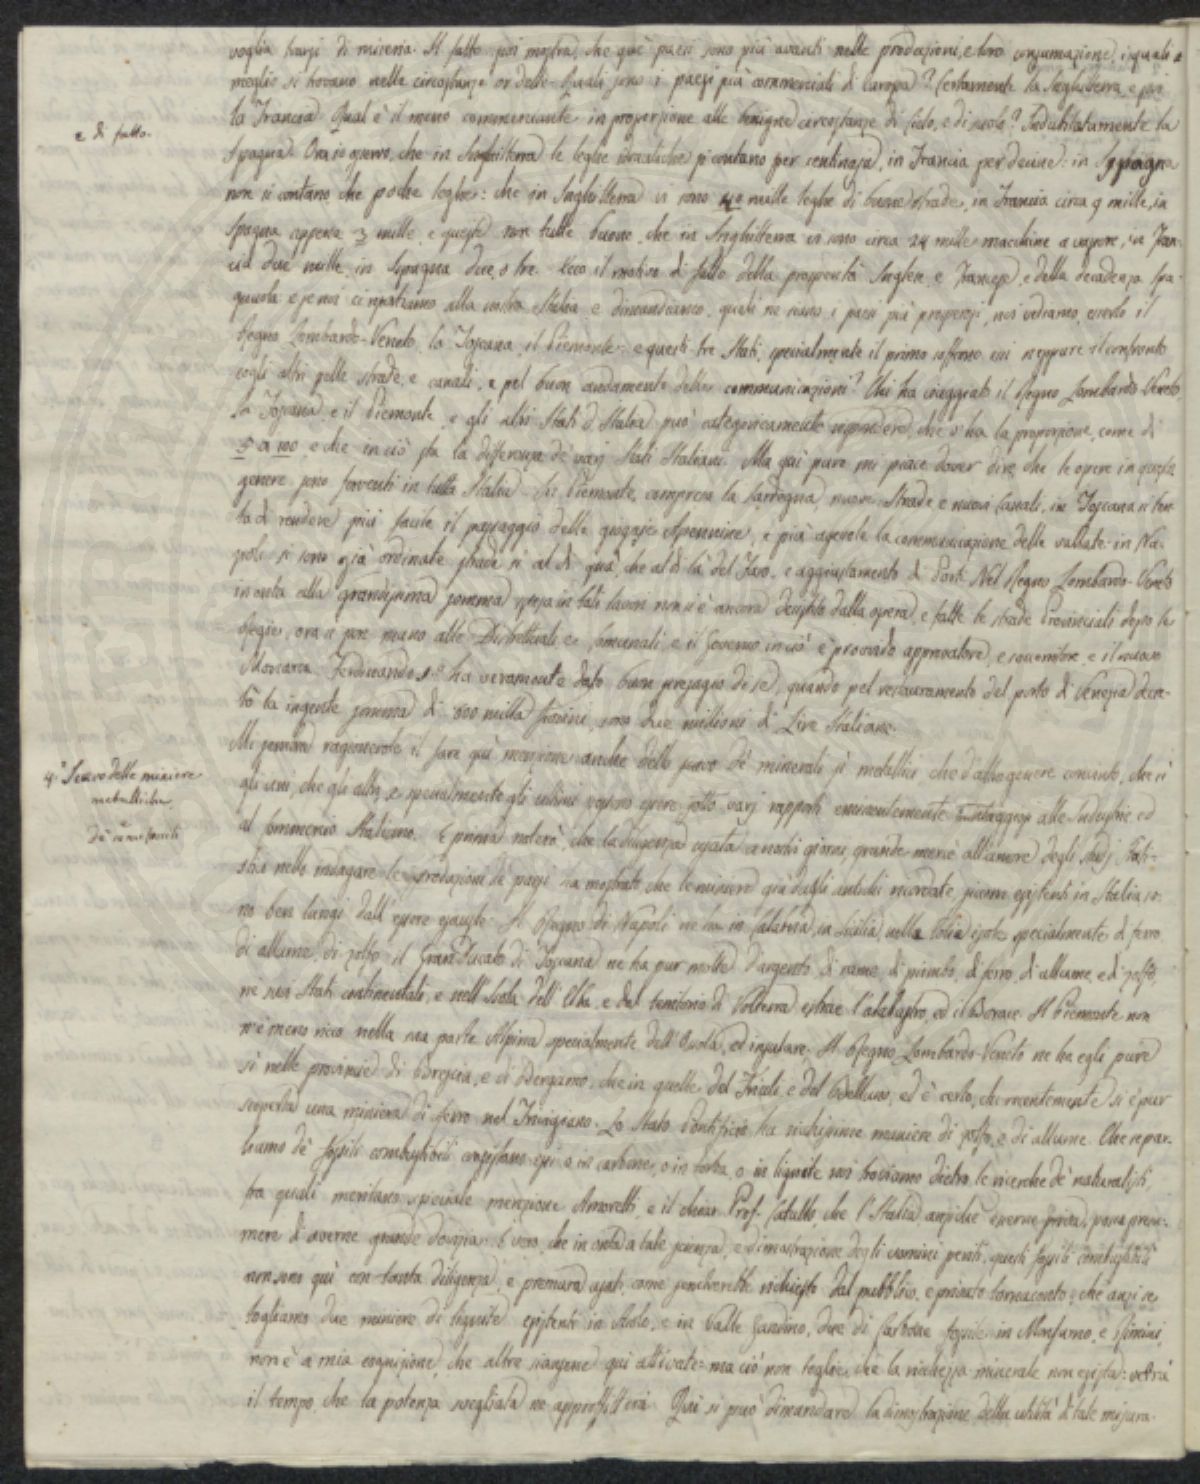 voglia trarsi di miseria. Il fatto poi mostra, che que' paesi sono più avanti nelle produzioni, e loro consumazione, i quali
meglio si trovano nelle circostanze or dette. Quali sono i paesi più commerciali di Europa? Certamente la Inghilterra, e poi
la Francia. Qual è il meno commerciante in proporzione alle benigne circostanze di Cielo, e di suolo? Indubitatamente la
e di fatto.
Spagna. Ora io osservo, che in Inghilterra le leghe idrauliche si contano per centinaja, in Francia per decine: in Spagna
non si contano che poche leghe: che in Inghilterra vi sono 40 mille leghe di buone strade, in Francia circa 9 mille, in
Spagna appena 3 mille, e queste non tutte buone, che in Inghilterra vi sono circa 14 mille macchine a vapore, in Fran-
cia due mille, in Spagna due, o tre. Ecco il motivo di fatto della prosperità Inglese, e Francese, e della decadenza Spa-
gnuola: e se noi ci portiamo alla nostra Italia e dimandiamo, quali ne siano i paesi più prosperosi, noi vediamo, esserlo il
Regno Lombardo-Veneto, la Toscana, il Piemonte: e questi tre Stati, specialmente il primo soffrono essi neppure il confronto
cogli altri pelle strade, e canali, e pel buon andamento delle communicazioni? Chi ha viaggiato il Regno Lombardo-Veneto,
la Toscana, e il Piemonte, e gli altri Stati d'Italia può categoricamente rispondere, che v'ha la proporzione, come di
5 a 100, e che in ciò sta la differenza de' varj Stati Italiani. Ma quì pure mi piace dover dire, che le opere in questo
genere sono ferventi in tutta Italia. In Piemonte, compresa la Sardegna, nuove Strade e nuovi Canali, in Toscana si ten-
ta di rendere più facile il passaggio delle giogaje Apennine, e più agevole la communicazione delle vallate: in Na-
poli si sono già ordinate strade sì al di quà, che al di là del Faro, e aggiustamento di Porti. Nel Regno Lombardo-Veneto
in onta alla grandissima somma spesa in tali lavori non si è ancora desistito dalla opera, e fatte le strade Provinciali dopo le
Regie, ora si pone mano alle Distrettuali e Comunali, e il Governo in ciò è provvido approvatore, e sovventore, e il nuovo
Monarca Ferdinando 1.º ha veramente dato buon presagio di se, quando pel restauramento del porto di Venezia decre-
tò la ingente somma di 800 milla fiorini, sono due millioni di Lire Italiane.
4.º Scavo delle miniere
metalliche,
e
de' combustibili
Mi sembra ragionevole il fare quì menzione anche dello scavo de' minerali sì metallici che d'altro genere, che sì
gli uni, che gli altri, e specialmente gli ultimi possono essere sotto varj rapporti eminentemente vantaggiosi alle Industrie ed
al Commercio Italiano. E prima noterò, che la diligenza usata a nostri giorni, grande mercè all'amore degli studj stati-
stici nello indagare le produzioni de' paesi ha mostrato, che le miniere già dagli antichi ricordate, siccome esistenti in Italia, so-
no ben lungi dall'essere esauste. Il Regno di Napoli ne ha in Calabria, in Sicilia, nelle Eolie isole specialmente di ferro,
di allume, di zolfo: il Gran Ducato di Toscana ne ha pur molte d'argento, di rame, di piombo, di ferro, di allume, e di zolfo,
ne' suoi Stati continentali, e nell'Isola dell'Elba, e dal territorio di Volterra estrae l'alabastro, ed il Borace. Il Piemonte non
n'è meno ricco nella sua parte Alpina specialmente dell'Ossola, ed insulare. Il Regno Lombardo-Veneto ne ha egli pure
sì nelle provincie di Brescia, e di Bergamo, che in quelle del Friuli e del Belluno, ed è certo, che recentemente si è pur
scoperta una miniera di ferro nel Trivigiano. Lo Stato Pontificio ha ricchissime miniere di zolfo, e di allume. Che se par-
liamo de' fossili combustibili consistano essi o in carbone, o in torba, o in lignite noi troviamo dietro le ricerche de' naturalisti,
tra quali meritano speciale menzione Amoretti, e il chiar. Prof. Catullo che l'Italia anzichè esserne priva, possa presu-
mere di averne grande dovizia. È vero, che in onta a tale scienza, e dimostrazione degli uomini periti, questi fossili combustibili
non sono quì con tanta diligenza, e premura usati, come sembrerebbe richiesto dal pubblico, e privato tornaconto; che anzi se
togliamo due miniere di lignite esistenti in Asolo, e in Valle Gandino, due di Carbone fossile in Monfumo, e Rimini,
non è a mia cognizione, che altre sianene quì attivate: ma ciò non toglie, che la ricchezza minerale non esista: vedrà
il tempo, che la potenza svegliata ne approffitterà. Quì si può dimandare la dimostrazione della utilità di tale misura.